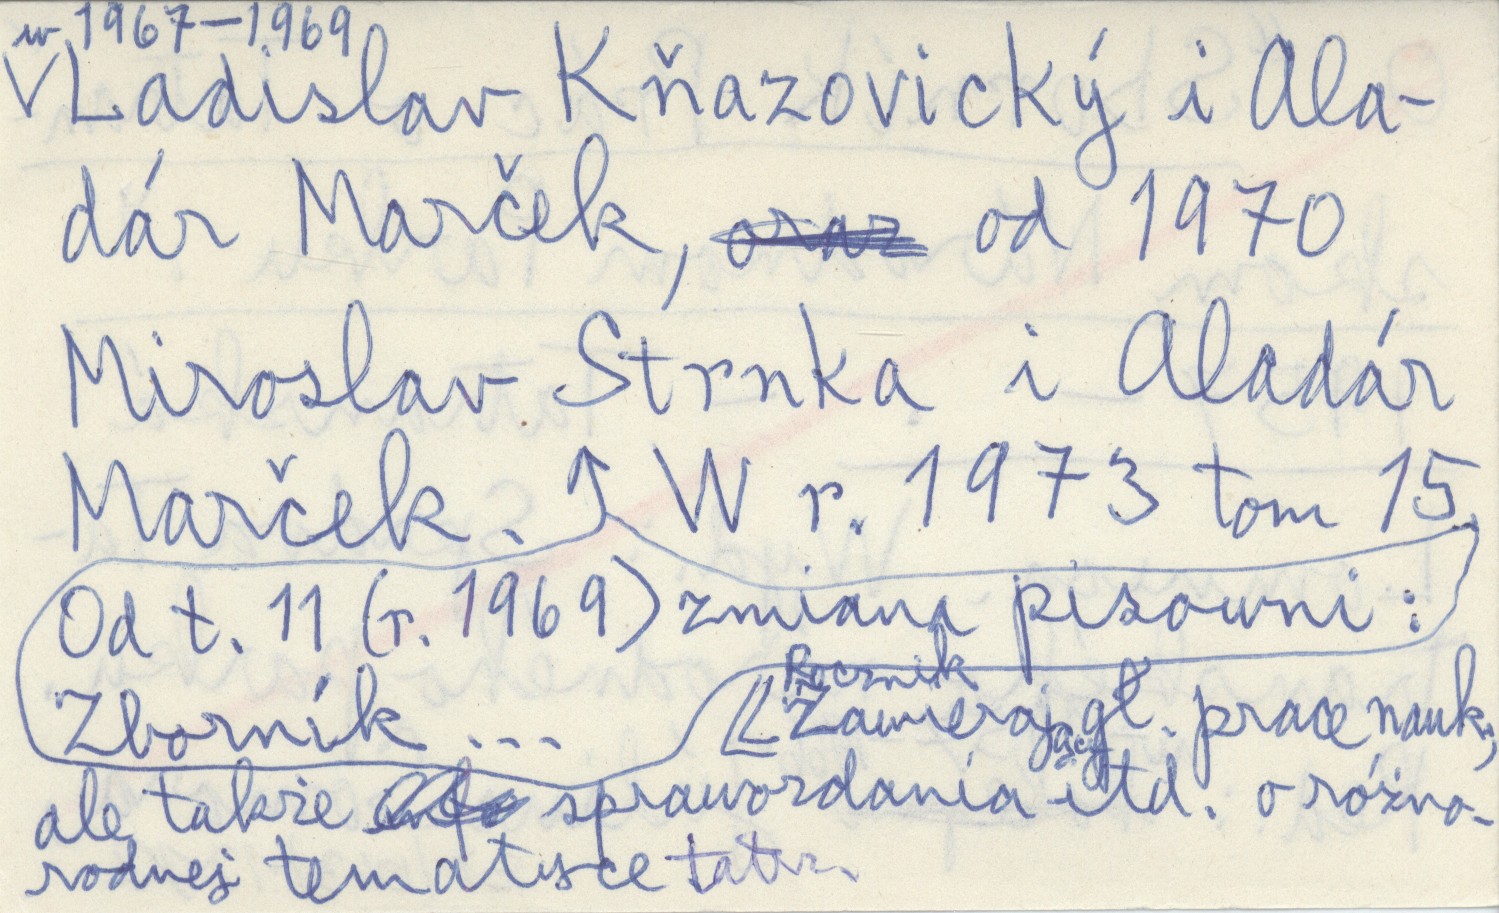 w 1967–1969
Ladislav Kňazovický i Ala-
dár Marček, oraz od 1970
Miroslav Strnka i Aladár
Marček. W r. 1973 tom 15.
Od t. 11 (r. 1969) zmiana pisowni:
Zborník ...
Rocznik
Zawierający gł. prace nauk.,
ale także sprawozdania itd. o różno-
rodnej tematyce tatrz.